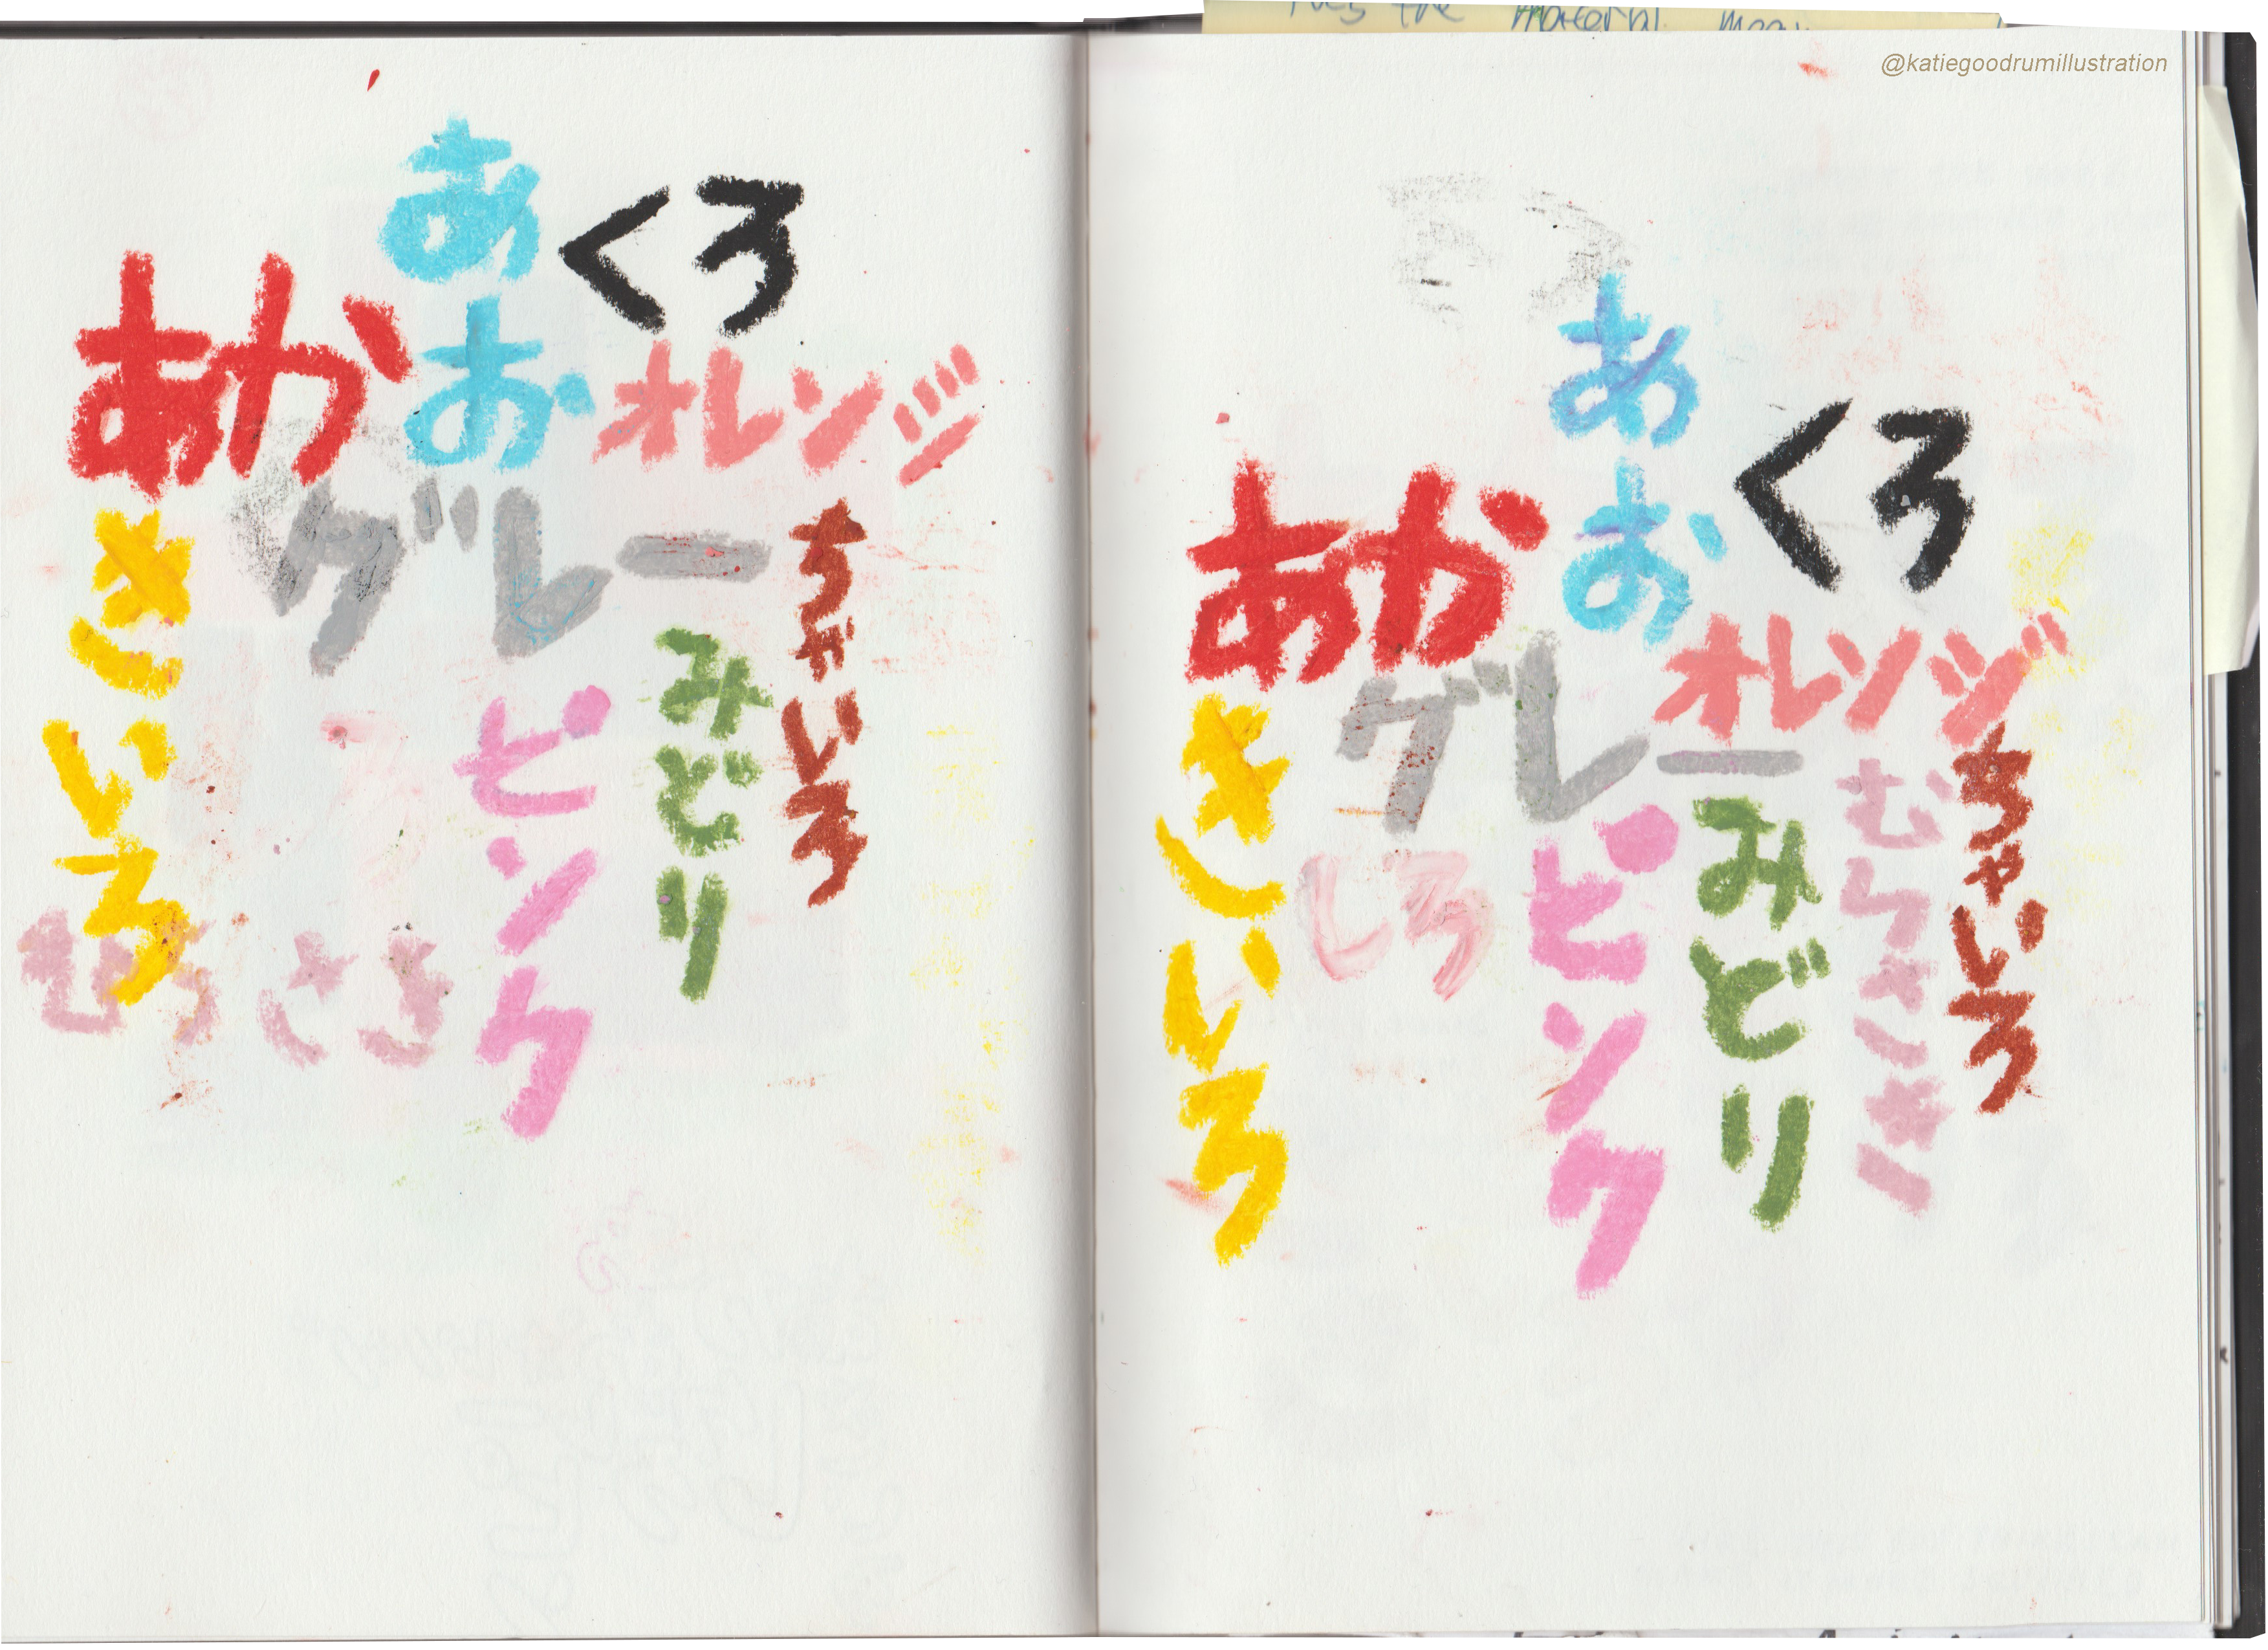 the material
@katiegoodrumillustration
あお
くろ
あか
オレンジ
グレー
きいろ
ちゃいろ
みどり
ピンク
むらさき
あお
くろ
あか
オレンジ
グレー
きいろ
しろ
ピンク
みどり
むらさき
ちゃいろ